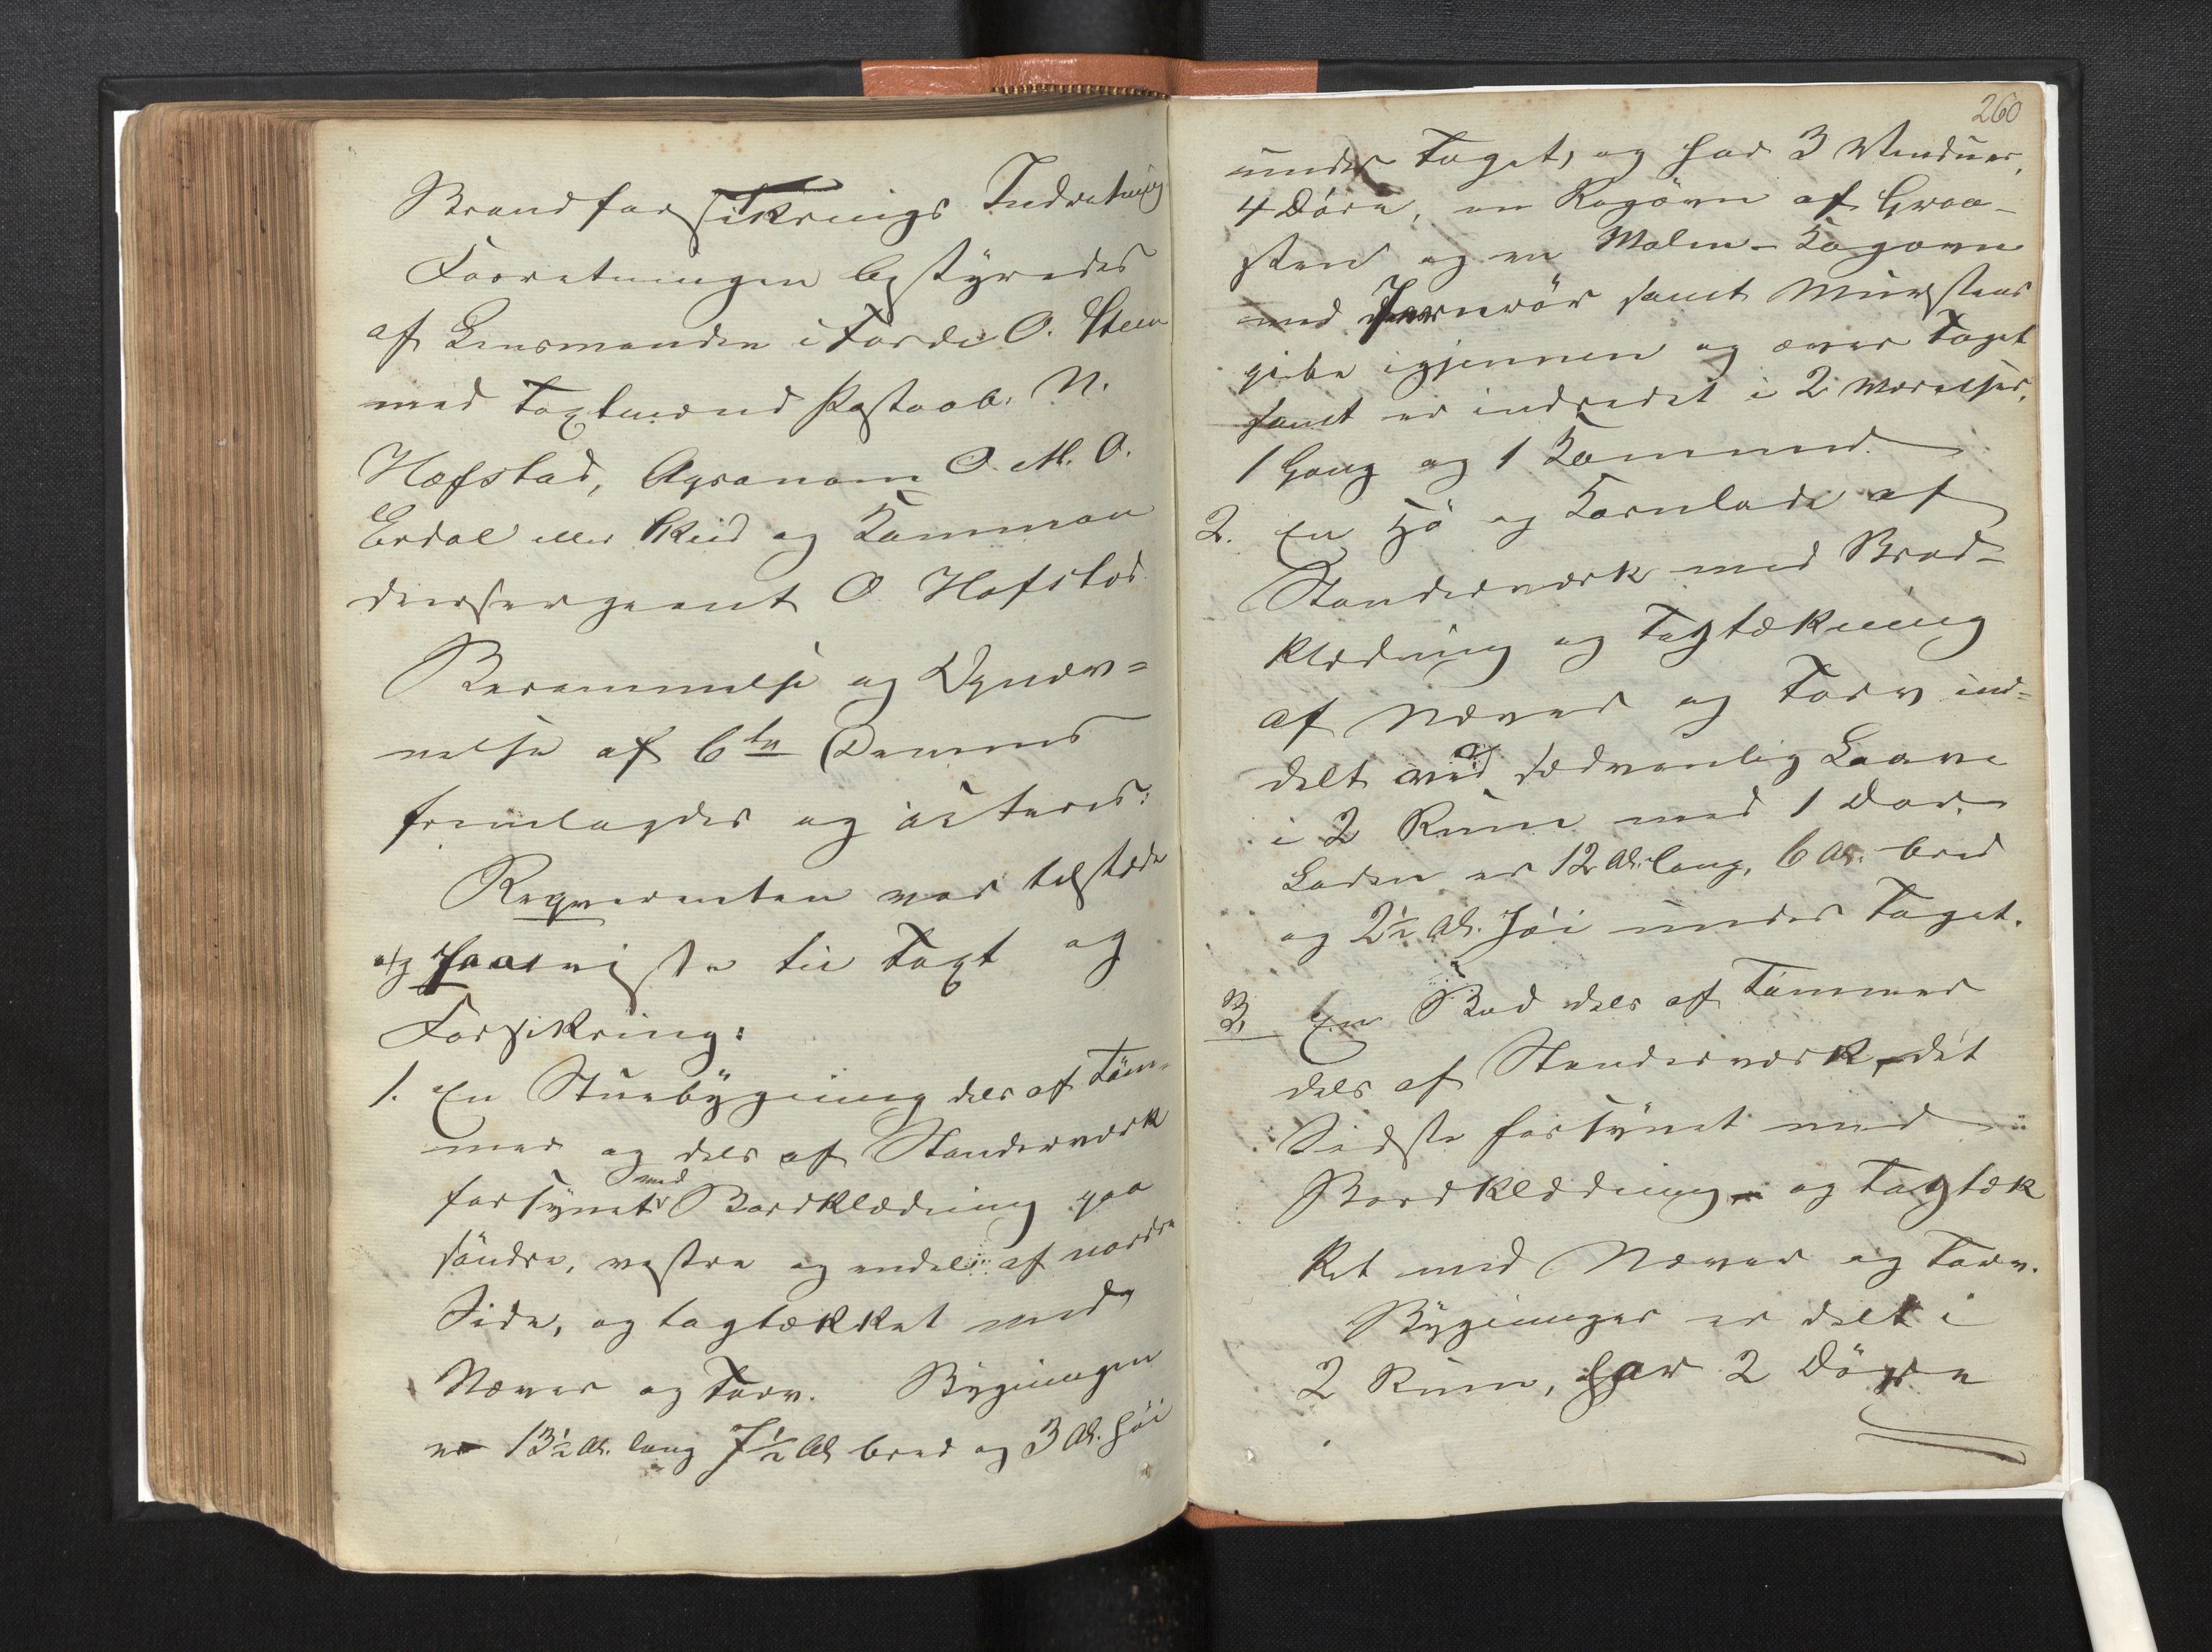 Brandforsikrings Indretning
Forretningen bestyredes
af Lensmanden i Førde O. Steen
med Taxtmænd Postaab. N.
Hafstad, Agronom O. M. O.
Erdal eller Kiid og Komman
deersergeant O Hafstad
Berammelse og Opnæv=
nelse af 6te Dennes
fremlagdes og
Reqverenten var tilstede
og paaviste til Taxt og
Forsikring:
1. En Stuebygning dels af Töm-
mer og dels af Standerværk
forsynet med Bordklædning paa
söndre, vestre og endel af nordre
Side, og tagtækket med
Næver og Torv. Bygningen
er 13½ Al. lang 7½ Al bred og 3 Al. høi
260
under Taget, og har 3 Vinduer,
4 Döre, en Rogövn af Graa-
sten og en Malm-Kogovn
med Jernrör samt Murstens
pibe igjennem og over Taget
samt er indredet i 2 Værelser,
1 Gang og 1 Kammer.
2. En Hö og Kornlade af
Standerværk med Bord-
klædning og Tagtækning
af Næver og Torv ind=
delt ved sædvanlig Laave
i 2 Rum med 1 Dör.
Laden er 12 Al. lang, 6 Al. bred
og 2½ Al. høi under Taget.
3. En Bod dels af Tömmer
dels af Standerværk, det
Sidste forsynet med
Bordklædning og Tagtæk
ket med Næver og Torv.
Bygninger er delt i
2 Rum, har 2 Döre